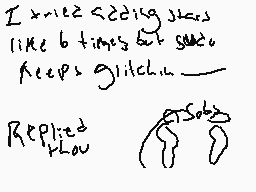 I tried adding stars
like 6 times but sudo
keeps glitchin
Replied
thou